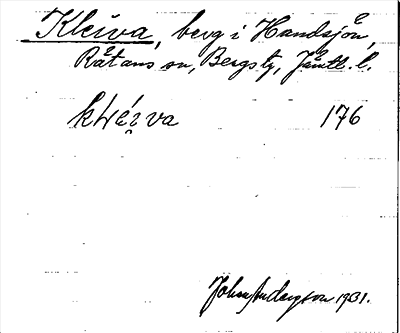 Kleiva, berg i Handsjön,
Rätans sn, Bergs tg, Jämtl. l.
176
John Anderson 1931.